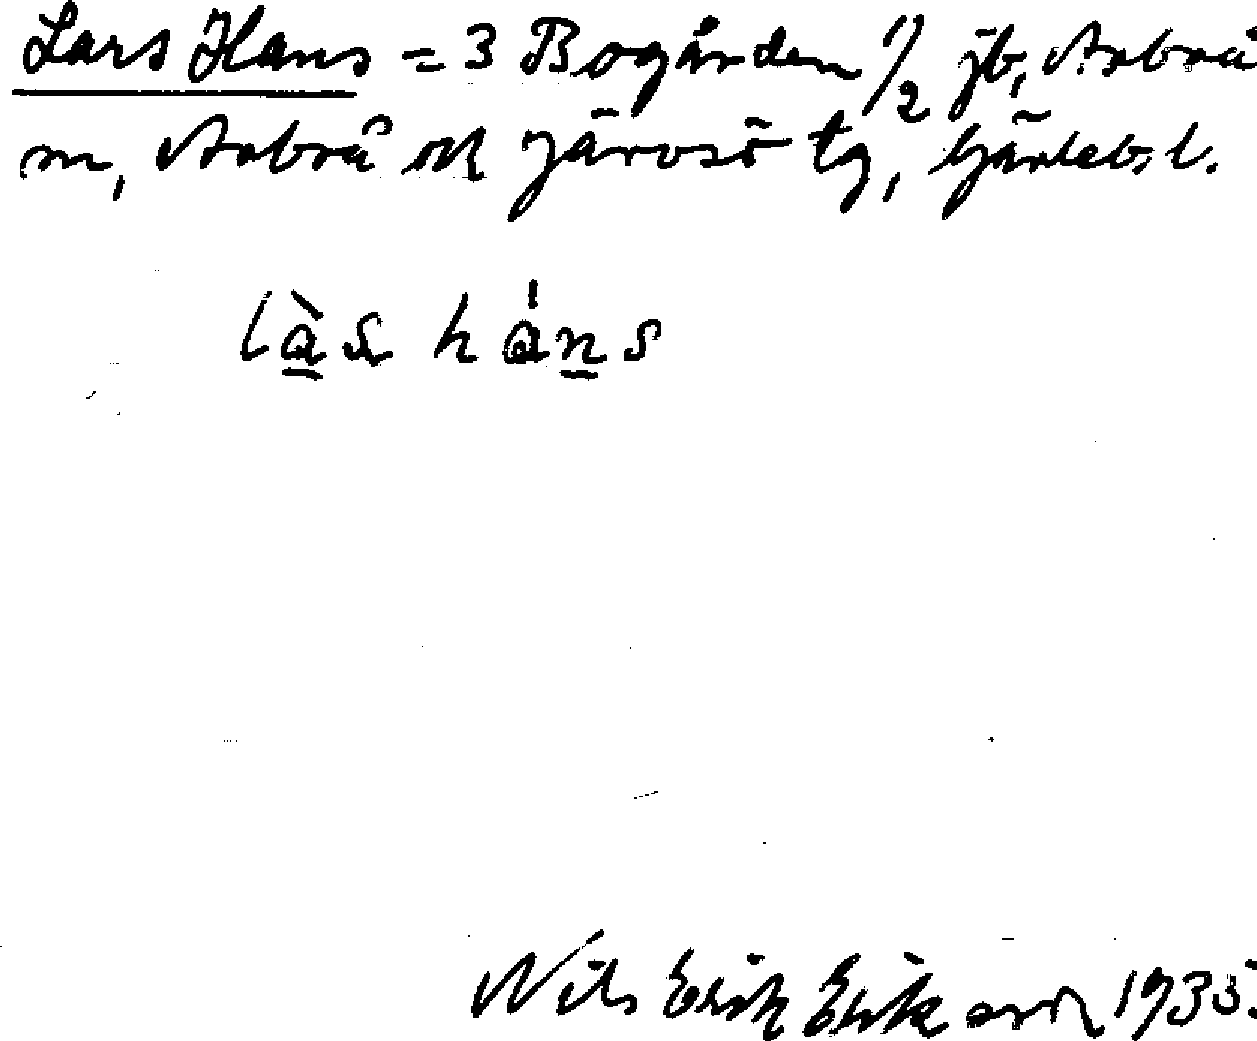 Lars Hans = 3 Bogården 1/2 jb, Arbrå
m, Arbrå och Järvsö tg, Gävlebs l.
làs háns
Nils Erik Erikson 1935.